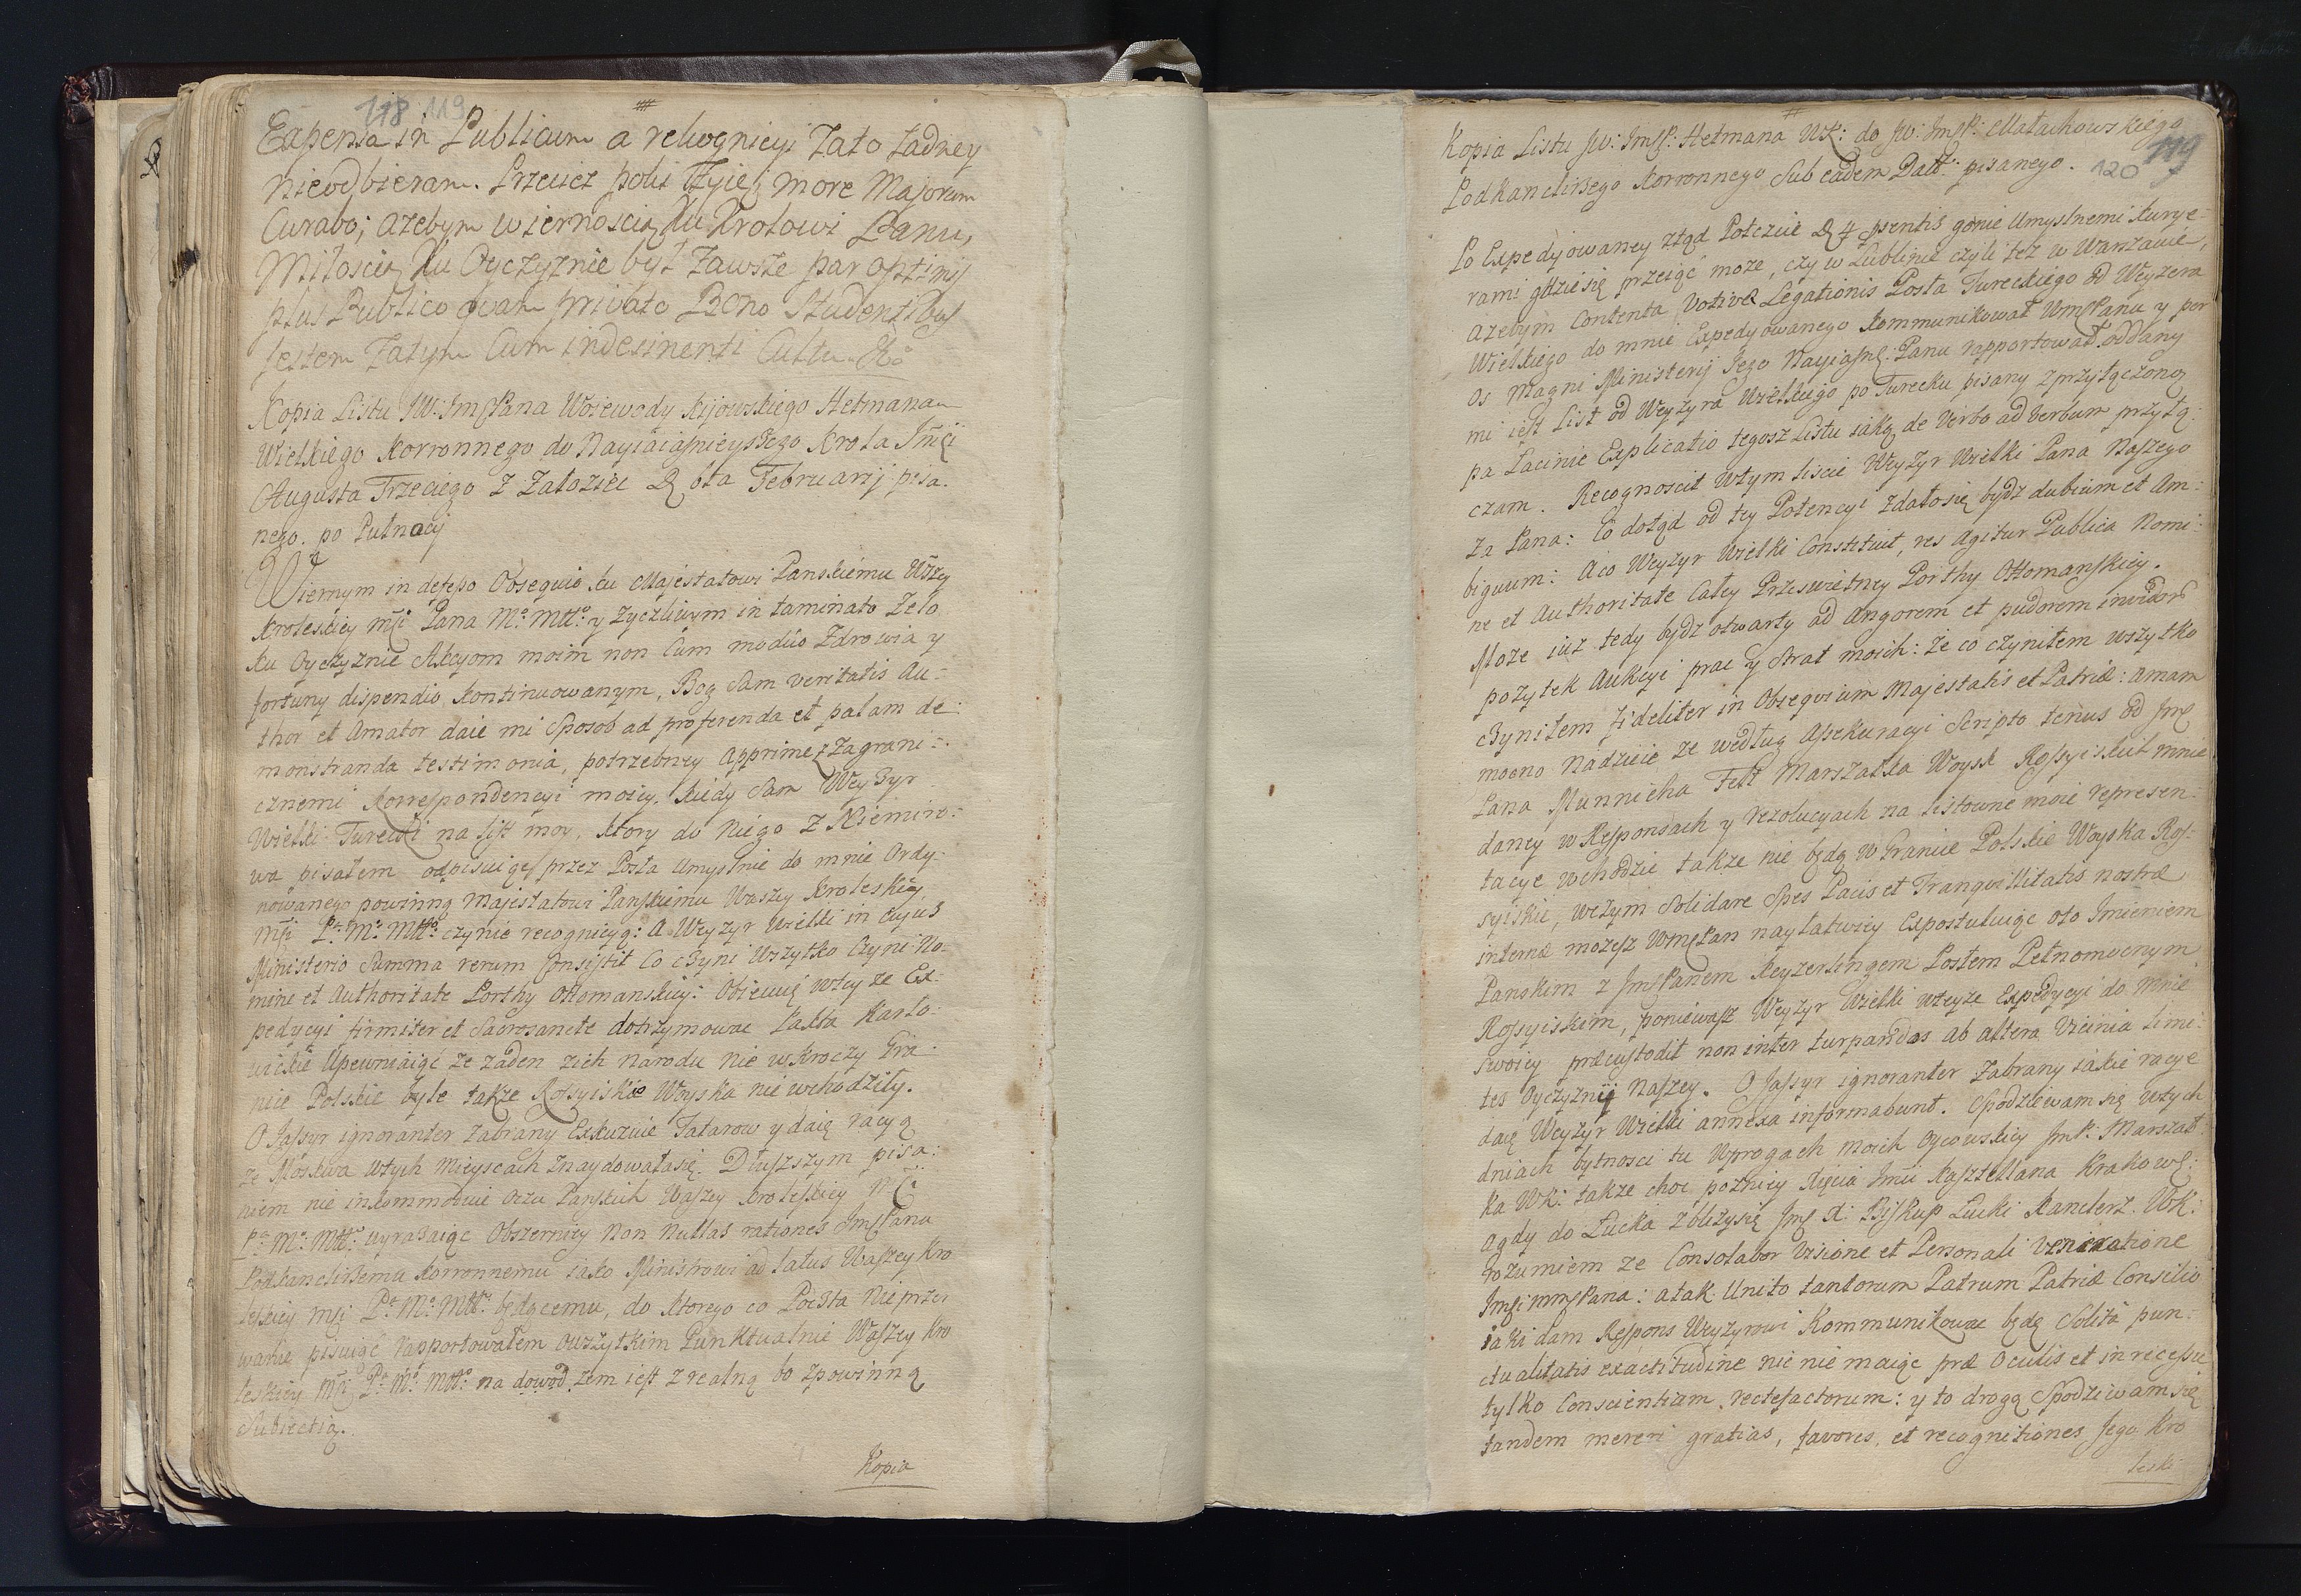 118 119
Expensa in Publicum a rekognicyi zato żadney
nieodbieram. Przecież poki żyię, more Majorum
Curabo; ażebym wiernością ku Krolowi Panu,
Miłością ku Oyczyznie był zawsze par optimis
plus Publico quam privato Bono Studentibus
Jestem zatym Cum indesinenti Cultu &c
Kopia Listu JW: ImśPana Woiewody Kijowskiego Hetmana
Wielkiego Korronnego do Nayiaiasnieyszego Krola Jmci
Augusta Trzeciego z Załoziec D 6ta Februarij pisa.
nego. po Putnocy
Wiernym indefesso Obsequio ku Majestatowi Panskiemu Wszey
Kroleskiey mści Pana Mo Młło y życzliwym intaminato Zelo
ku Oyczyznie Akcyom moim non Cum modico Zdrowia y
fortuny dispendio kontinuowanym, Bog Sam veritatis Au-
thor et Amator daie mi Sposob ad proferenda et palam de:
monstranda testimonia, potrzebney apprime z Zagrani-
cznemi korrespondencyi moiey. kiedy Sam WeyZyr
Wielki Turecki na list moy, ktory do Niego z Niemiro:
wa pisałem odpisuiąc przez Posła umyslnie do mnie Ordy-
nowanego powinną Majestatowi Panskiemu Waszey Kroleskiey
mści Pa Mo Młło czynie recognicyą: A Weyzyr wielki in Cujus
Ministerio Summa rerum Consistit Co czyni wszytko Czyni No-
mine et Authoritate Porthy Ottomanskiey: Obiecuię wteyze Ex-
pedycyi firmiter et Sacrosancte dotrzymowac Pakta Karlo:
wickie upewniaiąc ze żaden zich Narodu nie wkroczy Gra-
nice Polskie byle także Rossyiskie Woyska nie wchodziły.
O Jassyr ignoranter zabrany Exkuzuie Tatarow y daię racyą
że Moskwa wtych mieyscach Znaydowałasię. Dłuszszym pisa:
niem nie inkommoduie Oczu Panskich Waszey Kroleskiey Mści
Pa Mo Młło wyrazaiąc Obszerniey Non Nullas rationes ImśPanu
Podkanclirzemu Korronnemu iako Ministrowi ad latus Waszey Kro
leskiey mści Pa Mo Młło będącemu, do ktorego co Poczta nieprzer
wanie pisuiąc rapportowałem owszytkim Punktualnie Waszey Kro
leskiey Mści Pa Mo Młło na dowod żem iest z realną bo zpowinną
Subiectią.
Kopia
Kopia Listu JW: Imśp: Hetmana WK: do JW: Imśp: Małachowskiego
Podkanclirzego Korronnego Sub eadem Datt: pisanego.
120 119
Po Expedyiowaney ztąd Potczcie D 4 psentis gonie umyslnemi kurye-
rami gdzie się przeiąć moze, czy w Lublinie czyli tez w Warszawie,
azebym Contenta Votivæ Legationis Posła Tureckiego od Weyzera
Wielkiego do mnie Expedyowanego kommunikował UmśPanu y per
os Magni Ministerij Jego Nayiasn: Panu rapportował. oddany
mi iest List od Weyzyra Wielkiego po Turecku pisany zprzyłączoną
pa Lacinie Explicatio tegosz Listu iaką de Verbo ad verbum przyłą:
czam. Recognoscit wtym liscie Weyzyr Wielki Pana Naszego
za Pana: Co dotąd od tey Potencyi zdałosię bydz dubium et Am:
biguum: A co Weyzyr Wielki Constituit, res agitur Publica Nomi:
ne et Authoritate Całey Przeswietney Porthy Ottomanskiey.
Moze iuz tedy bydz otwarty ad Angorem et pudorem invidor
pozytek Aukcyi prac y Strat moich: że co czyniłem wszytko
czyniłem fideliter in Obsequium Majestatis et Patriæ: amam
mocno Nadzieie ze według Assekuracyi Scripto tenus od Imś
Pana Munnicha Felt Marszałka Woysk Rossyiskich mnie
daney w Responsach y rezolucyach na listowne moie represen:
tacye wchodzic takze nie będą w Granice Polskie Woyska Ros-
syiskie, wczym Solidare Spes Pacis et Tranquillitatis nostræ
internæ mozesz WmśPan naylatwiey Expostuluiąc oto Imieniem
Panskim z ImśPanem Keyzerlingem Posłem Pełnomocnym
Rossyiskim, poniewasz Weyzyr Wielki wteyze Expedycyi do mnie
swoiey præcustodit non inter turpandos ab altera Vicinia limi:
tes Oyczyzny Naszey. O Jassyr ignoranter zabrany iakie racye
daię Weyzyr Wielki annexa informabunt. Spodziewam się wtych
dniach bytnosci tu wprogach moich Oycowskiey Imśp: Marszał
ka WK: takze choc pozniey Xięcia Imci Kasztellana Krakows:
agdy do Łucka zblizysię Imś X: Biskup Łucki Kanclerz. WK:
rozumiem ze Consolabor Visione et Personali Veneratione
ImściWmśPana: atak Unito tantorum Patrum Patriæ Consilio
iaki dam Respons Weyzyrowi Kommunikowac będę Solita pun:
ctualitatis exactitudine nic nie maiąc præ Oculis et in recessu
tylko Conscientiam rectefactorum: y to drogą Spodziewam się
tandem mereri gratias, favores, et recognitiones Jego Kro
leski